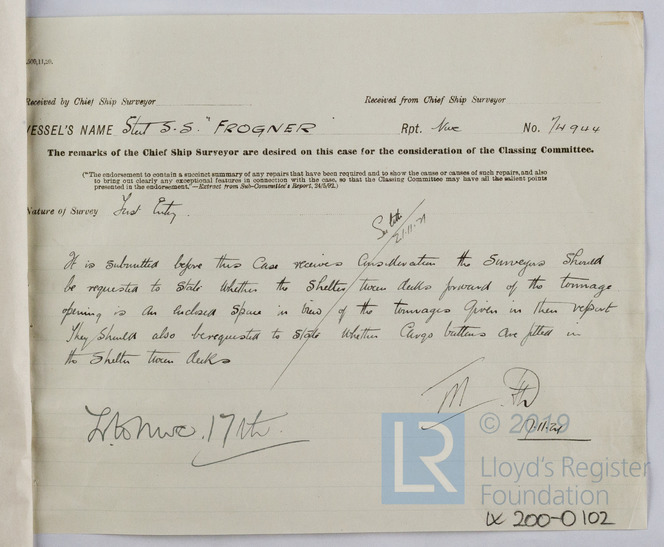 Received by Chief Ship Surveyor Received from Chief Ship Surveyor
VESSEL'S NAME Steel S.S. "FROGNER" Rpt. Nwc No. 74944
The remarks of the Chief Ship Surveyor are desired on this case for the consideration of the Classing Committee.
("The endorsement to contain a succinct summary of any repairs that have been required and to show the cause or causes of such repairs, and also
to bring out clearly any exceptional features in connection with the case, so that the Classing Committee may have all the salient points
presented in the endorsement."—Extract from Sub-Committee's Report, 24/5/92.)
Nature of Survey First Entry.
See letter
21.11.21
It is submitted before this Case receives Consideration the Surveyors should
be requested to state whether the Shelter tween decks forward of the tonnage
opening is an enclosed space in view of the tonnages given in their report
They should also be requested to state whether Cargo battens are fitted in
the Shelter tween decks
17th.
© 2019
LR
Lloyd's Register
Foundation
LX 200-0102